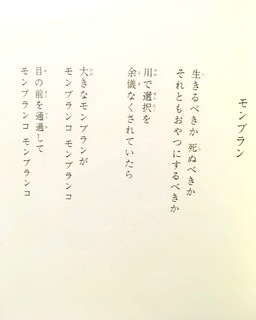 モンブラン
生きるべきか 死ぬべきか
それともおやつにするべきか
川で選択を
余儀なくされていたら
大きなモンブランが
モンブランコ モンブランコ
目の前を通過して
モンブランコ モンブランコ